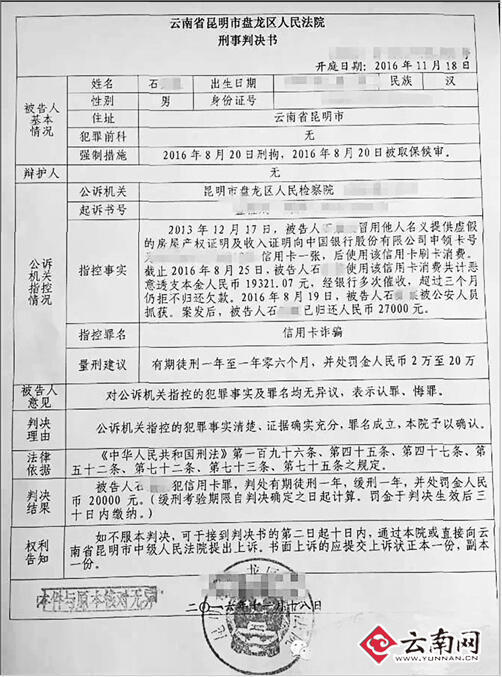 云南省昆明市盘龙区人民法院
刑事判决书
号
开庭日期：2016年11月18日
被告人基本情况
姓名 石 出生日期 民族 汉
性别 男 身份证号
住址 云南省昆明市
犯罪前科 无
强制措施 2016年8月20日刑拘，2016年8月20日被取保候审。
辩护人 无
公诉机关指控情况
公诉机关 昆明市盘龙区人民检察院
起诉书号
指控事实
2013年12月17日，被告人 冒用他人名义提供虚假
的房屋产权证明及收入证明向中国银行股份有限公司申领卡号
为 信用卡一张，后使用该信用卡刷卡消费。
截止2016年8月25日，被告人石 使用该信用卡消费共计恶
意透支本金人民币19321.07元，经银行多次催收，超过三个月
仍拒不归还欠款。2016年8月19日，被告人石 被公安人员
抓获。案发后，被告人石 已归还人民币27000元。
指控罪名 信用卡诈骗
量刑建议 有期徒刑一年至一年零六个月，并处罚金人民币2万至20万
被告人意见
对公诉机关指控的犯罪事实及罪名均无异议，表示认罪、悔罪。
判决理由
公诉机关指控的犯罪事实清楚、证据确实充分，罪名成立，本院予以确认。
法律依据
《中华人民共和国刑法》第一百九十六条、第四十五条、第四十七条、第
五十二条、第七十二条、第七十三条、第七十五条之规定。
判决结果
被告人石 犯信用卡罪，判处有期徒刑一年，缓刑一年，并处罚金人民
币20000元。（缓刑考验期限自判决确定之日起计算。罚金于判决生效后三
十日内缴纳。）
权利告知
如不服本判决，可于接到判决书的第二日起十日内，通过本院或直接向云
南省昆明市中级人民法院提出上诉。书面上诉的应提交上诉状正本一份，副本
一份。
本件与原本核对无异
二〇一六年十一月十八日
云南网
WWW.YUNNAN.CN